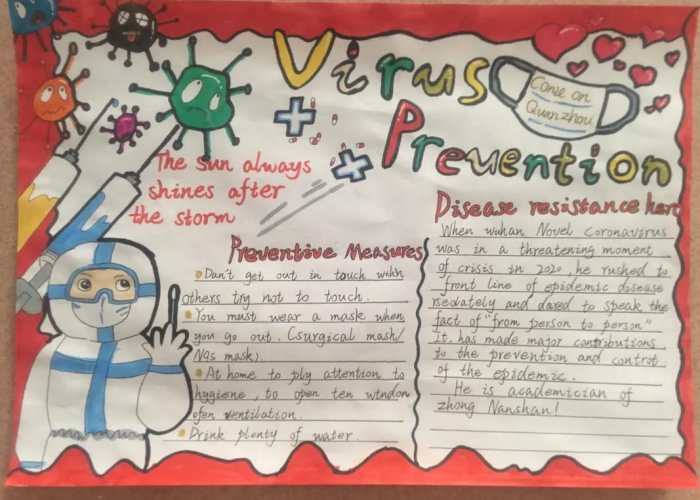 Virus
Prevention
Come on
Quanzhou
The sun always
shines after
the storm
Preventive Measures
Don't get out in touch with
others try not to touch.
You must wear a mask when
you go out. (surgical mask/
N95 mask).
At home to ply attention to
hygiene, to open ten window
ofen ventilation.
Drink plenty of water.
Disease resistance hero
When wuhan Novel coronavirus
was in a threatening moment
of crisis in 2020, he rushed to
front line of epidemic disease
resolately and dared to speak the
fact of "from person to person"
It has made major contributions
to the prevention and control
of the epidemic.
He is academician of
zhong Nanshan!